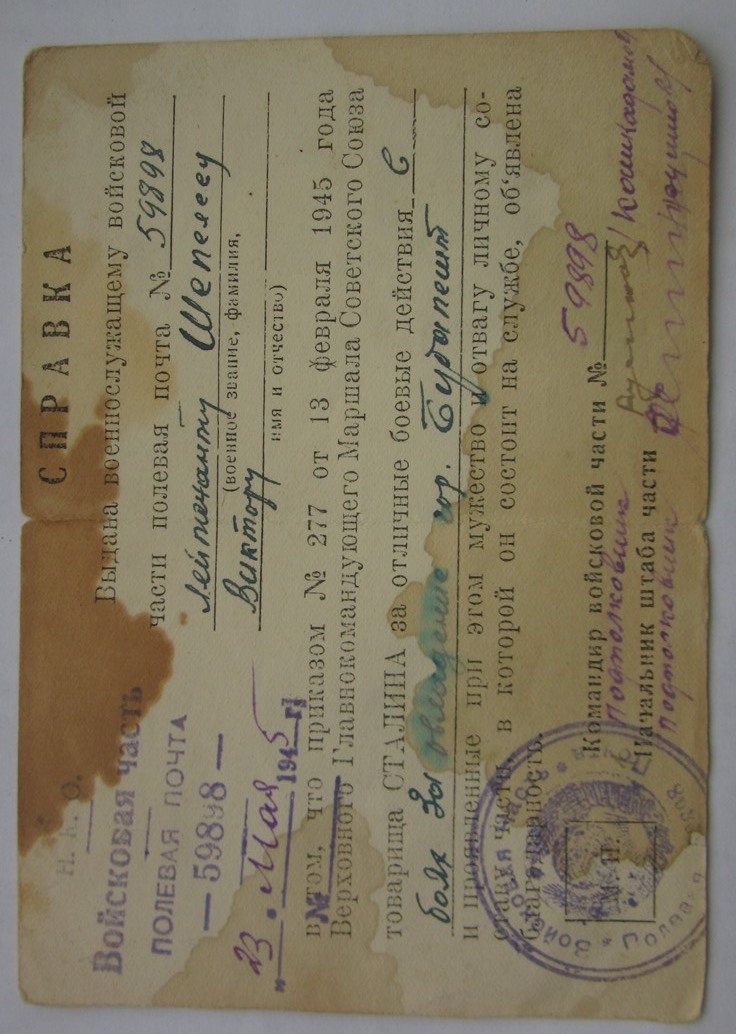 Н. К. О.
Войсковая часть
ПОЛЕВАЯ ПОЧТА
— 59898 —
„23. Мая 1945 г.
№
СПРАВКА
Выдана военнослужащему войсковой
части полевая почта № 59898
Лейтенанту Шепелеву
(военное звание, фамилия,
Виктору
имя и отчество)
в том, что приказом № 277 от 13 февраля 1945 года
Верховного Главнокомандующего Маршала Советского Союза
товарища СТАЛИНА за отличные боевые действия в
боях за овладение гор. Будапешт
и проявленные при этом мужество и отвагу личному со-
ставу части, в которой он состоит на службе, об‘явлена
благодарность.
Командир войсковой части № 59898
Подполковник
Начальник штаба части
Подполковник
М. П.